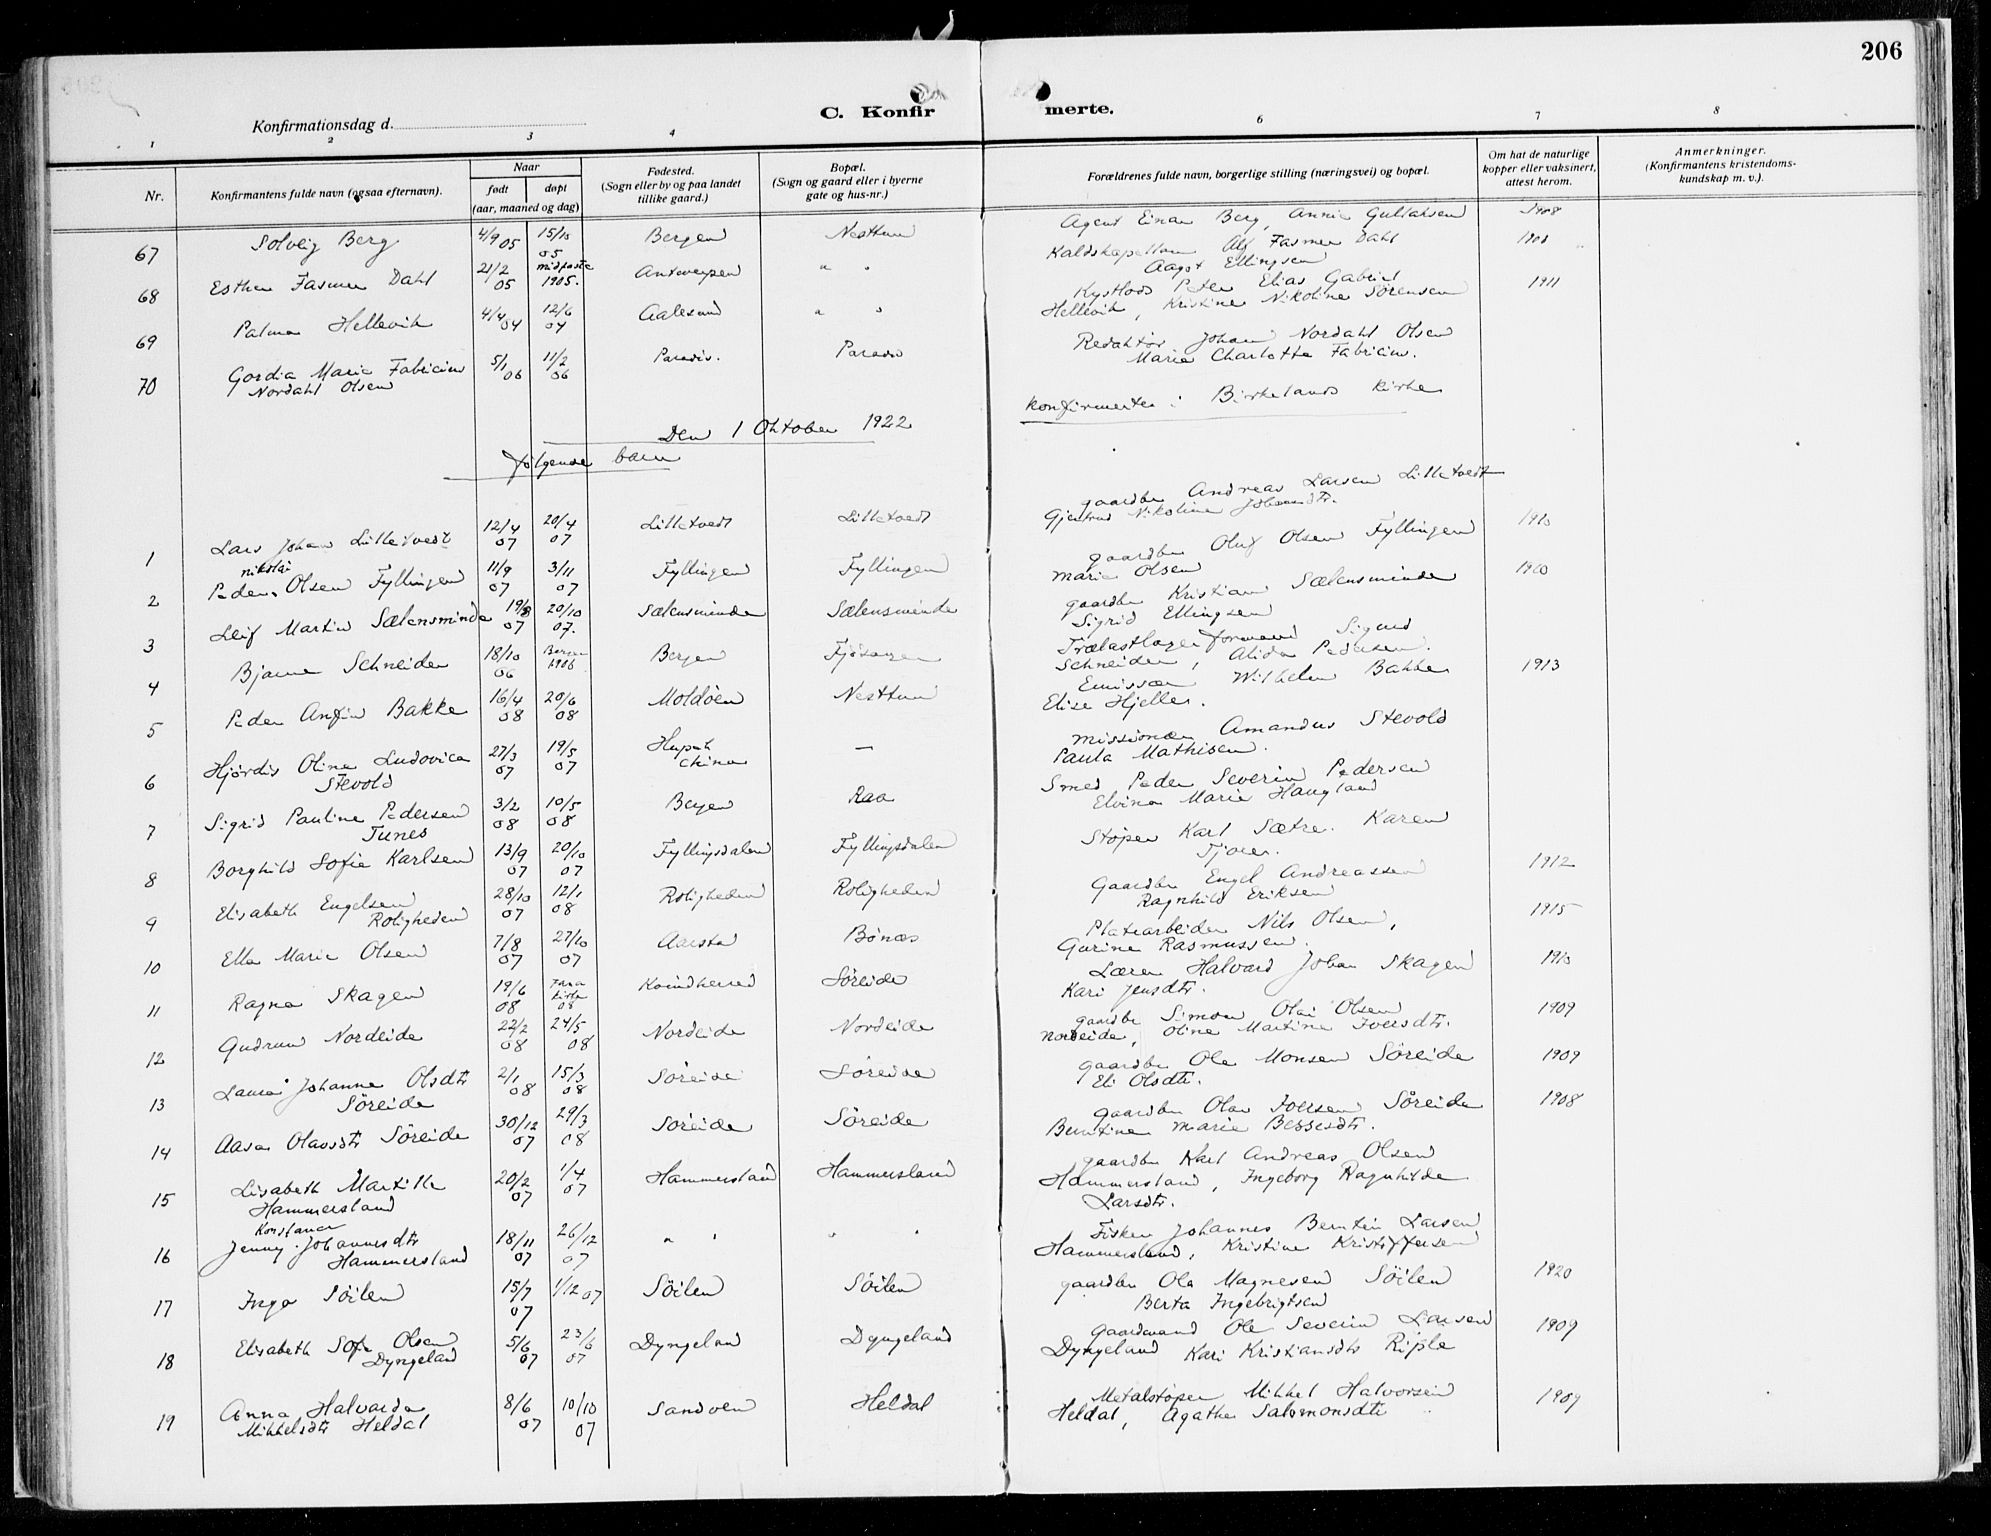 206
C. Konfir merte.
Konfirmationsdag d.
1 2 3 4 6 7 8
Nr. Konfirmantens fulde navn (ogsaa efternavn). Naar født døpt (aar, maaned og dag) Fødested. (Sogn eller by og paa landet tillike gaard.) Bopæl. (Sogn og gaard eller i byerne gate og hus-nr.) Forældrenes fulde navn, borgerlige stilling (næringsvei) og bopæl. Om hat de naturlige kopper eller vaksinert, attest herom. Anmerkninger. (Konfirmantens kristendoms-kundskap m. v.).
67 Solveig Berg 4/9 05 15/10 05 Bergen Nesttun Agent Einar Berg, Annie Gullaksen 1908
68 Esther Fasmer Dahl 21/2 05 1905. Antwerpen " " Kaldskapellan Alf Fasmer Dahl
Aagot Ellingsen
69 Palma Hellevik 4/4 04 12/6 04 Aalesund " " Kystlods Peter Elias Gabriel 1911
Hellevik, Kristine Nikoline Sørensen
70 Gordia Marie Fabricius 5/1 06 11/2 06 Paradis. Paradis Redaktør Johan Nordahl Olsen
Nordahl Olsen Marie Charlotte Fabricius.
Den 1 Oktober 1922 konfirmertes i Birkelands kirke
følgende barn
1 Lars Johan Lilletvedt 12/4 07 20/4 07 Lilletvedt Lilletvedt gaardbr Andreas Larsen Lilletvedt
Gjertrud Nikoline Johannesdtr. 1910
2 Peder Nikolai Olsen Fyllingen 11/9 07 3/11 07 Fyllingen Fyllingen gaardbr Oluf Olsen Fyllingen
Marie Olsen
3 Leif Martin Sælensminde 19/8 07 20/10 07. Sælensminde Sælensminde gaardbr Kristian Sælensminde
Sigrid Ellingsen
4 Bjarne Schneider 18/10 06 Bergen 1906 Bergen Fjøsanger Trælastlagerformand Sigurd
Schneider, Alida Pedersen.
5 Peder Anfin Bakke 16/4 08 20/6 08 Moldøen Nesttun Emissær Wilhelm Bakke 1913
Elise Hjelle.
6 Hjørdis Oline Ludovica 27/3 07 19/5 07 Hupeh China — missionær Amandus Stevold
Stevold Paula Mathisen.
7 Sigrid Pauline Pedersen 3/2 08 10/5 08 Bergen Raa Smed Peder Severin Pedersen
Tunes Elvina Marie Haugland
8 Borghild Sofie Karlsen 13/9 07 20/10 07 Fyllingsdalen Fyllingsdalen Støper Karl Sætre. Karen
9 Elisabeth Engelsen 28/10 07 12/1 08 Roligheden Roligheden Gaardbr Engel Andreassen 1912
Roligheden Ragnhild Eriksen
10 Ella Marie Olsen 7/8 07 27/10 07 Aarstad Bønæs Platearbeider Nils Olsen, 1915
Gurine Rasmussen.
11 Ragna Skagen 19/6 08 Fana kirke 08 Kvindherred Søreide Lærer Halvard Johan Skagen
Kari Jensdtr.
12 Gudrun Nordeide 22/2 08 24/5 08 Nordeide Nordeide gaardbr Simon Olai Olsen 1909
Nordeide, Oline Martine Iversdtr.
13 Laura Johanne Olsdtr 2/1 08 15/3 08 Søreide Søreide gaardbr Ole Monsen Søreide 1909
Søreide Eli Olsdtr.
14 Aasa Olavsdtr Søreide 30/12 07 29/3 08 Søreide Søreide gaardbr Olav Iversen Søreide 1908
Berntine Marie
15 Lisabeth Martille 20/2 07 1/4 07 Hammersland Hammersland gaardbr Karl Andreas Olsen
Hammersland Hammersland, Ingeborg Ragnhilde
Larsdtr.
16 Jenny Konstance Johannesdtr 18/11 07 26/12 07 " " " " Fisker Johannes Berntin Larsen
Hammersland Hammersland, Kristine Kristoffersen
17 Inga Søilen 15/7 07 1/12 07 Søilen Søilen gaardbr Ole Magnesen Søilen 1920
Berta Ingebrigtsen
18 Elisabeth Sofie Olsen 5/6 07 23/6 07 Dyngeland Dyngeland Gaardmand Ole Severin Larsen 1909
Dyngeland Dyngeland Kari Kristiansdtr Riple
19 Anna Halvarda 8/6 07 10/10 07 Sandven Heldal Metalstøper Mikkel Halvorsen 1909
Mikkelsdtr Heldal Heldal, Agathe Salomonsdtr